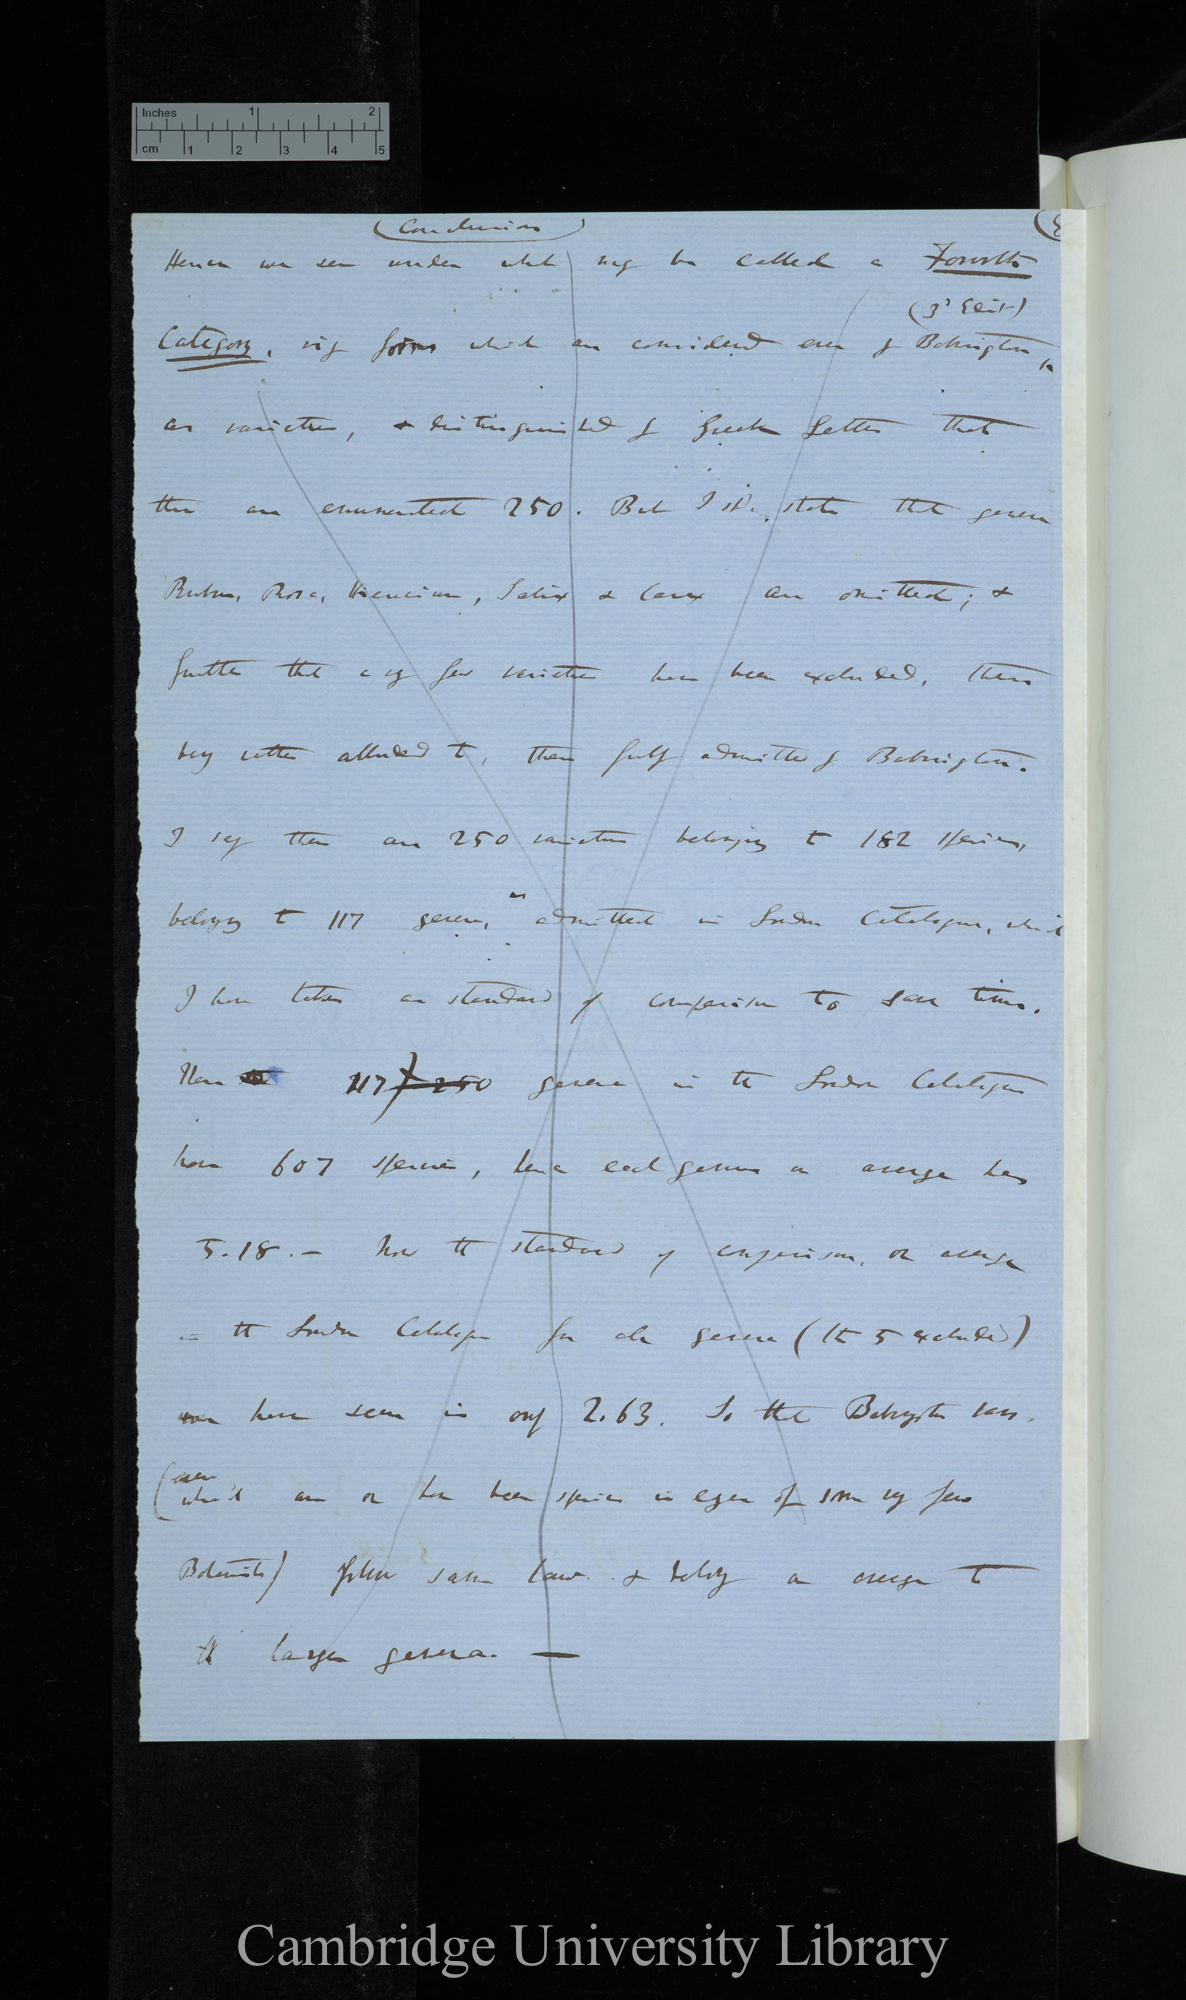 Inches 1 2
cm 1 2 3 4 5
(Conclusion)
Hence we see under what may be called a Fourth
(3d Edit)
Category, viz forms which are considered even by Babington
as varieties, & distinguished by Greek letters that
there are enumerated 250. But I shd. state that genera
Rubus, Rosa, Hieracium, Salix & Carex are omitted; &
further that a very few varieties have been excluded, these
being rather alluded to, than fully admitted by Babington.
I say there are 250 varieties belonging to 182 species,
belonging to 117 genera, as admitted in London Catalogue, which
I have taken as standard of comparison to save time.
These 117 250 genera in the London Catalogue
have 607 species, hence each genus on average has
5.18.— Now the standard of comparison, or average
in the London Catalogue for all genera (the 5 excluded)
we have seen is only 2.63. So that Babington vars.
(even
which are or have been species in eyes of some very few
Botanists) follow same law. & belong on average to
the larger genera. —
Cambridge University Library